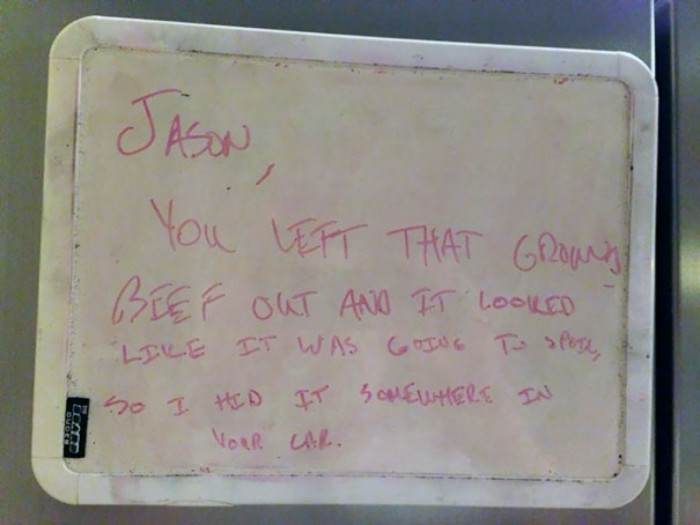 JASON,
YOU LEFT THAT GROUND
BEEF OUT AND IT LOOKED
LIKE IT WAS GOING TO SPOIL,
SO I HID IT SOMEWHERE IN
YOUR CAR.
THE BOARD
DUDES